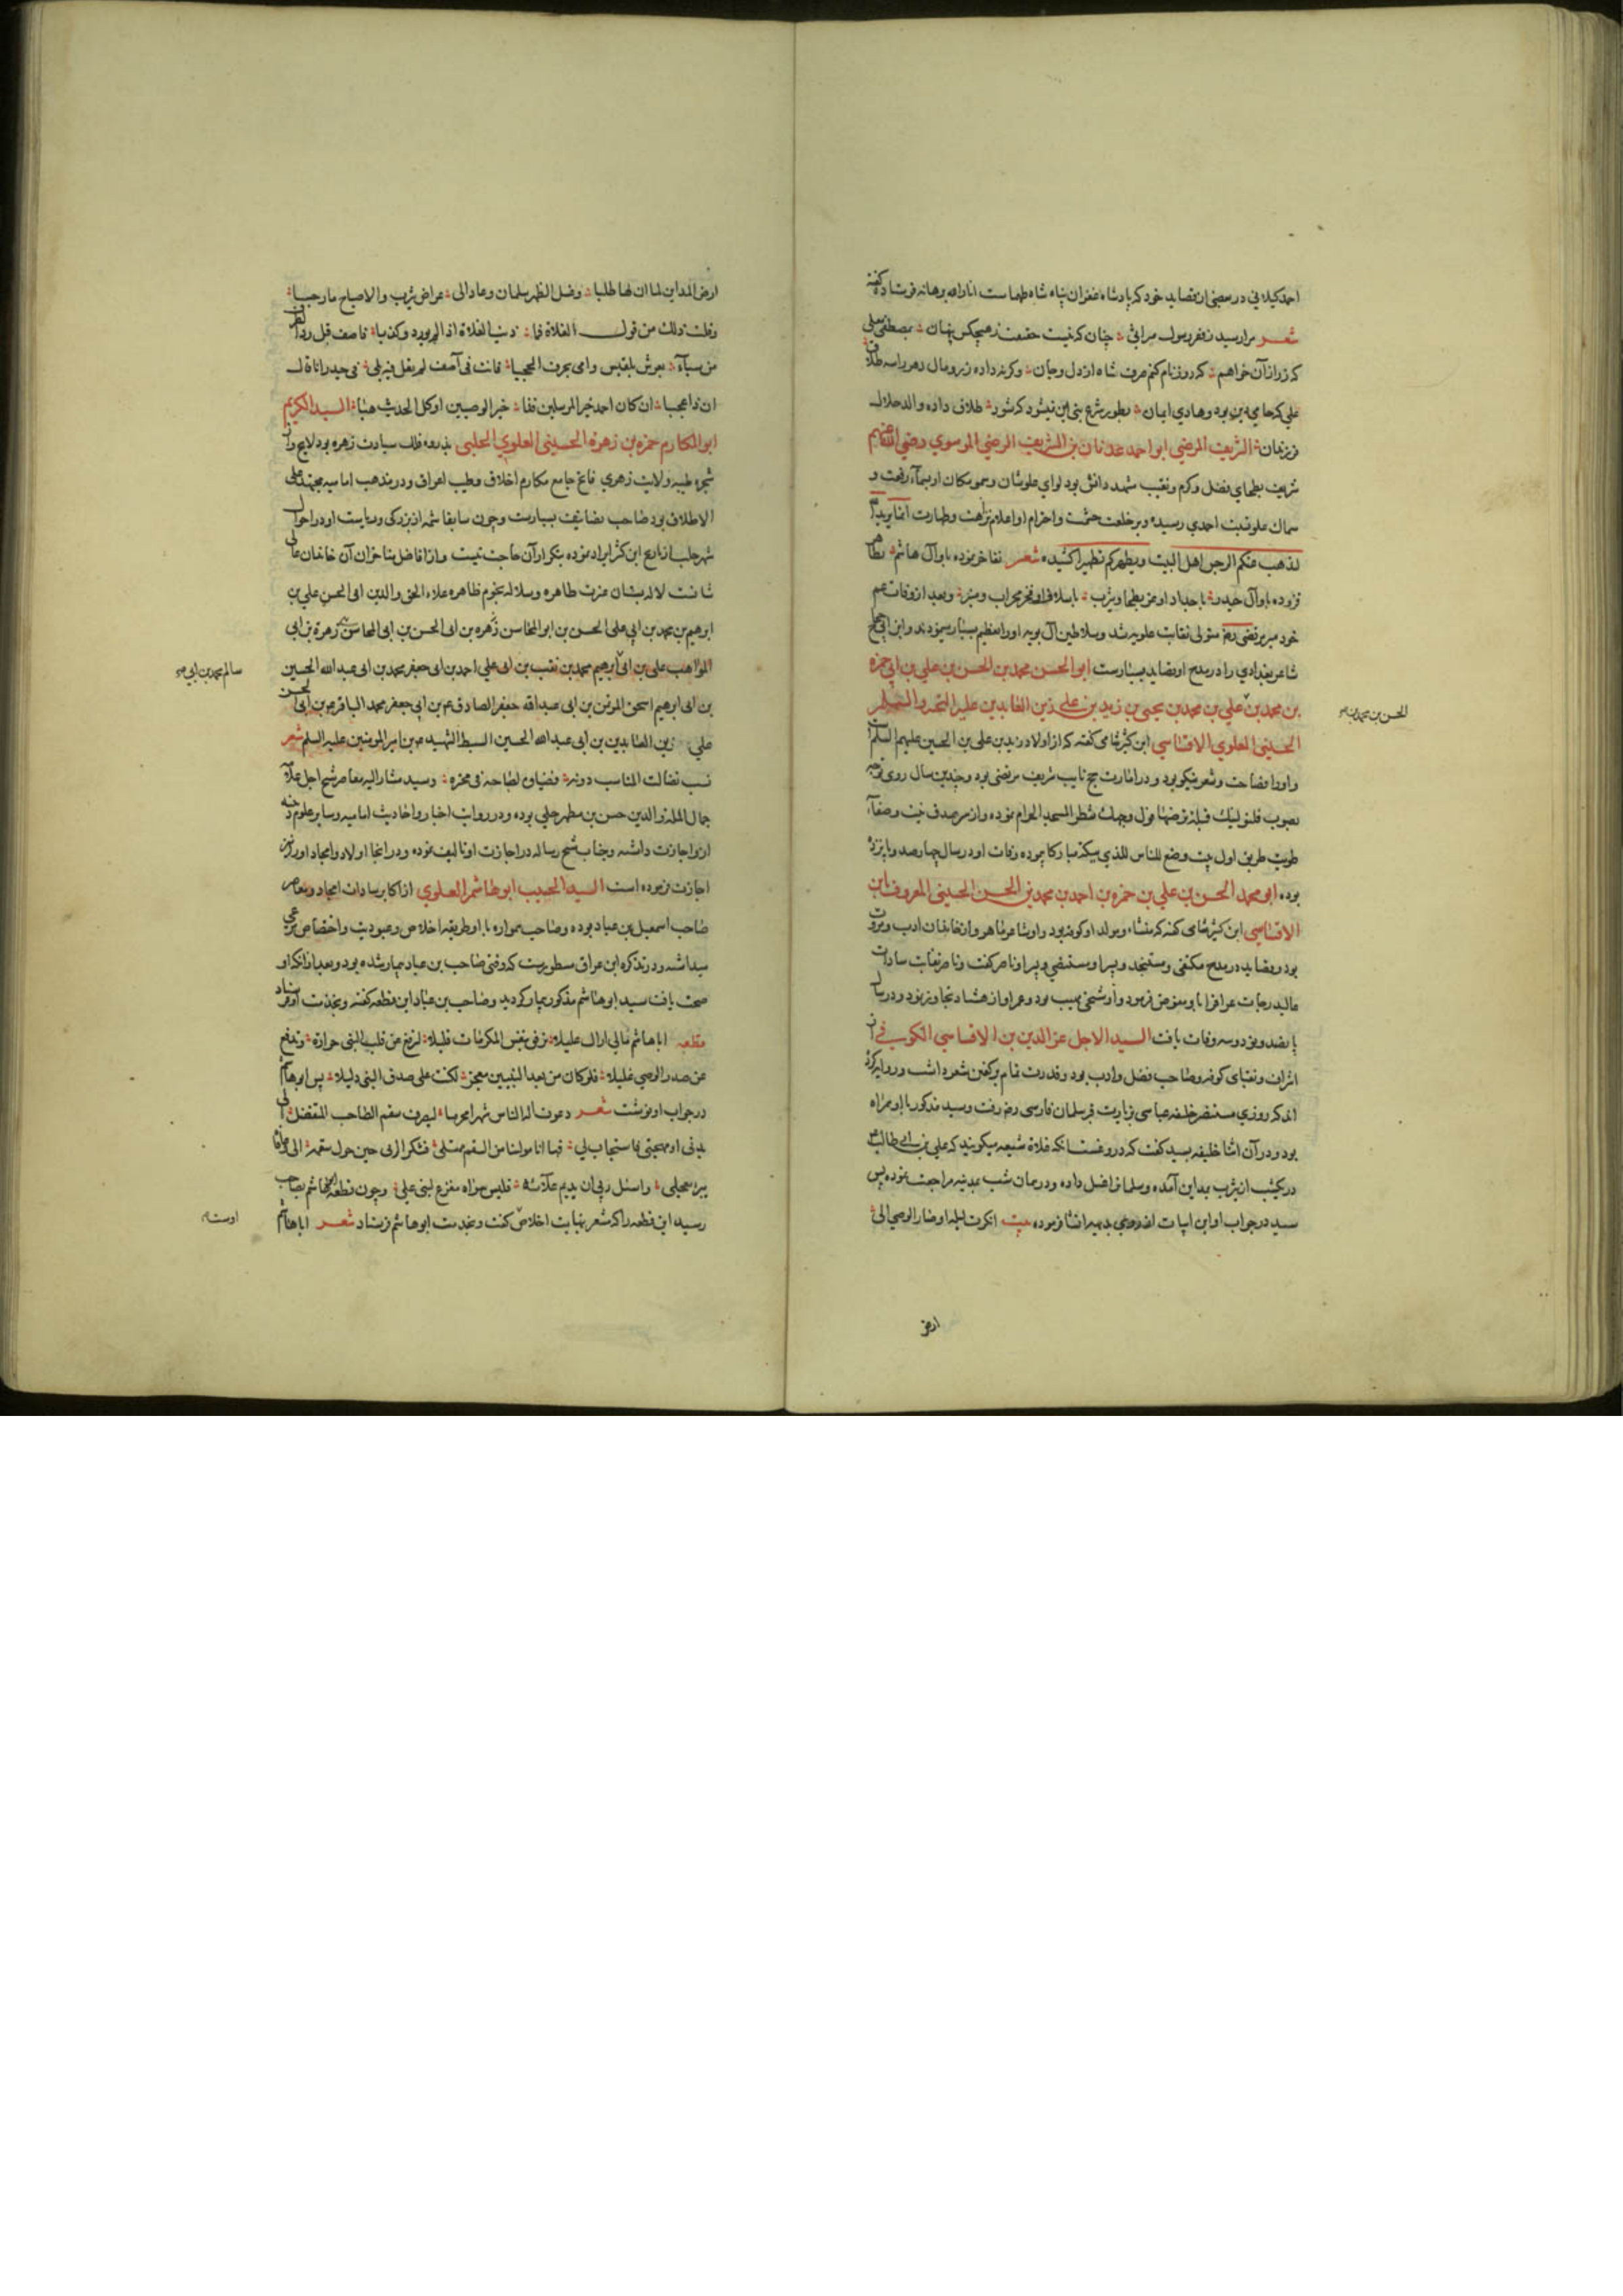 احمد کیلانی در بعضی از قصاید خود که بپادشاه غفران پناه شاه طهماست انار الله برهانه فرستاده گفته
شعر مرا رسید ز فقر رسول میراثی چنان که نیست حقیقت ز هیچکس پنهان بمصطفی علی
علی که حامی دین بود و هادی ایمان بطور شرع بنی این نیشود که شود طلاق داده والد حلال
فرزندان الشریف المرضی ابو احمد عدنان بن الشریف الرضی الموسوی رضی الله عنهم
شریف بطحای فضل و کرم و نقیب مشهد دانش بود لوای علوشان و سمو مکان او بسماء رفعت و
سماک علو نسبت احمدی رسیده و بر خلعت حشمت و احترام او اعلام نزاهت و طهارت انما یرید الله
لیذهب عنکم الرجس اهل البیت و یطهرکم تطهیرا کشیده شعر تفاخر نموده باو آل هاشم
فزوده باو آل حیدر باجداد او عز بطحا و یثرب باسلاف او فخر محراب و منبر و بعد از وفات عم
خود میر مرتضی رضه متولی نقابت علویه شد و سلاطین آل بویه او را تعظیم بسیار مینمودند و ابن الحجاج
شاعر بغدادی را در مدح او قصاید بسیارست ابو الحسن محمد بن الحسن بن علی بن ابی حمزه
بن محمد بن علی بن محمد بن یحیی بن زید بن علی زین العابدین علیه التحیه والسلام
الحسینی العلوی الاقساسی ابن کثیر شامی گفته که از اولاد زید بن علی بن الحسین علیهم السلم است
و او را فصاحت و شعر نیکو بود و در امارت حج نایب شریف مرتضی بود و چندین سال روی توجه
بصوب فلنولینک قبلة ترضیها فول وجهک شطر المسجد الحرام نموده و از سر صدق نیت و صفاء
طویت طریق اول بیت وضع للناس للذی ببکة مبارکا پیموده وفات او در سال چهارصد و پانزده
بوده ابو محمد الحسن بن علی بن حمزه بن احمد بن محمد بن الحسن الحسینی المعروف بابن
الاقساسی ابن کثیر شامی گفته که منشاء و مولد او کوفه بود و او شاعر ماهر و از خاندان ادب و مروت
بود و قصاید در مدح مکتفی و مستنجد و پسر او مستضی و پسر او ناصر گفت و ناصر نقابت سادات
عالیدرجات عراق را باو مفوض فرمود و او شیخی مهیب بود و عمر او از هشتاد تجاوز نمود و در سال
پانصد و نود و سه وفات یافت السید الاجل عز الدین بن الاقساسی الکوفی از
اشراف و نقبای کوفه و صاحب فضل و ادب بود و قدرت تمام بر گفتن شعر داشت و روایت کرده
اند که روزی مستنصر خلیفه عباسی بزیارت قبر سلمان فارسی رضه رفت و سید مذکور با او همراه
بود و در آن اثنا خلیفه بسید گفت که دروغست آنکه غلاة شیعه میگویند که علی بن ابی طالب ع
در یکشب از یثرب بمداین آمده و سلمانرا غسل داده و در همان شب بمدینه مراجعت نموده پس
سید در جواب او این ابیات انشا فرموده بیت انکرت لیلة اذ صار الوصی الی
ارض
الحسن بن محمد بن صح
ارض المداین لما ان لها طلبا وغسل الطهر سلمان وعاد الی عراص یثرب والاصباح ما رجبا
وقلت ذلک من قول الغلاة فما ذنب الغلاة اذا لم یورد و کذبا فاصف قبل رد الطرف
من سبآء بعرش بلقیس وافی یخرق الحجبا فانت فی آصف لم تغل فیه بلی فی حیدر انا غال
ان ذا عجبا ان کان احمد خیر المرسلین فذا خیر الوصیین او کل الحدیث هبا السید الکریم
ابو المکارم حمزه بن زهرة الحسینی العلوی الحلبی بدر سماء فلک سیادت زهره بود لایح و از
شجره طیبه ولایت زهری فایح جامع مکارم اخلاق و طیب اعراق و در مذهب امامیه مجتهد علی
الاطلاق بود صاحب تصانیف بسیارست و چون سابقا شمه از بزرکی و ریاست او در احوال
شهر حلب از تاریخ ابن کثیر ایراد نموده بتکرار آن حاجت نیست و از افاضل متاخران آن خاندان عالی
شانست لاله بستان عترت طاهره و سلاله نجوم ظاهره علاء الحق والدین ابی الحسن علی بن
ابرهیم بن محمد بن ابی علی الحسن بن ابو المحاسن زهره بن ابی الحسن بن ابی المحاسن زهرة بن ابی
المواهب علی بن ابی ابرهیم محمد بن نقیب بن ابی علی احمد بن ابی جعفر محمد بن ابی عبد الله الحسین
سالم محمد بن ابی صح
بن ابی ابرهیم اسحق المؤتمن بن ابی عبد الله جعفر الصادق ع م بن ابی جعفر محمد الباقر ع م بن ابی الحسن
علی زین العابدین بن ابی عبد الله الحسین السبط الشهید ع م بن امیر المؤمنین علیه السلم شعر
نسب تضالت المناسب دونه فضیاؤه لصباحه فی فجره و سید مشار الیه معاصر شیخ اجل علامه
جمال الملة والدین حسن بن مطهر حلی بوده و در روایت اخبار و احادیث امامیه و سایر علوم دینیه
ازو اجازت داشته و جناب شیخ رساله در اجازت او تالیف نموده و در انجا اولاد و امجاد او را نیز
اجازت فرموده است السید الحبیب ابو هاشم العلوی از اکابر سادات امجاد و معاصر
صاحب اسمعیل بن عباد بوده و صاحب همواره با او طریقه اخلاص و عبودیت و اختصاص مرعی
میداشته و در تذکره ابن عراق مسطورست که وقتی صاحب بن عباد بیمار شده بود و بعد از انکه او
صحت یافت سید ابو هاشم مذکور بیمار کردید و صاحب بن عباد این قطعه گفته و بخدمت او فرستاد
قطعه ابا هاشم مالی اراک علیلا ترفق بنفس المکرمات قلیلا لترفع عن قلب النبی حرارة وتدفع
عن صدر الوصی غلیلا فلو کان من بعد النبیین معجز لکنت علی صدق النبی دلیلا پس ابو هاشم
در جواب او نوشت شعر دعوت اله الناس شهرا محرما لیصرف سقم الصاحب المتفضل الی
بدنی او مهجتی فاستجاب لی فها انا مولانا من السقم ممتلی فشکرا لربی حین حول سقمه الی و عافا
ببرء معجلی واسئل ربی ان یدیم علآئه فلیس سواه مفزع لبنی علی و چون قطعه ابو هاشم بصاحب
رسید این قطعه را که شعر بنهایت اخلاص گفت و بخدمت ابو هاشم فرستاد شعر ابا هاشم
اوست صح